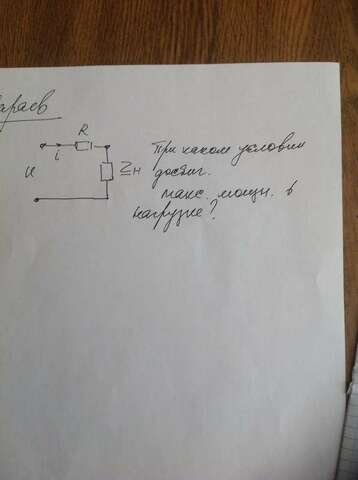 R
i
U
Zн
При каком условии
достиг.
макс. мощн. в
нагрузке?